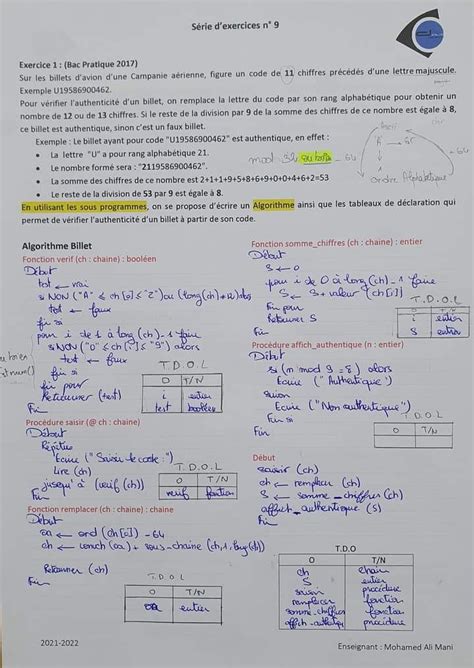 Série d'exercices n° 9
Exercice 1 : (Bac Pratique 2017)
Sur les billets d'avion d'une Campanie aérienne, figure un code de 11 chiffres précédés d'une lettre majuscule.
Exemple U19586900462.
Pour vérifier l'authenticité d'un billet, on remplace la lettre du code par son rang alphabétique pour obtenir un
nombre de 12 ou de 13 chiffres. Si le reste de la division par 9 de la somme des chiffres de ce nombre est égale à 8,
ce billet est authentique, sinon c'est un faux billet.
Exemple : Le billet ayant pour code "U19586900462" est authentique, en effet :
• La lettre "U" a pour rang alphabétique 21.
• Le nombre formé sera : "2119586900462".
• La somme des chiffres de ce nombre est 2+1+1+9+5+8+6+9+0+0+4+6+2=53
• Le reste de la division de 53 par 9 est égale à 8.
mod 32
- 64
A → 65
ordre Alphabétique
En utilisant les sous programmes, on se propose d'écrire un Algorithme ainsi que les tableaux de déclaration qui
permet de vérifier l'authenticité d'un billet à partir de son code.
Algorithme Billet
Fonction verif (ch : chaine) : booléen
Début
test ← vrai
si NON ("A" ≤ ch[0] ≤ "Z") ou (long(ch) ≠ 12) alors
test ← faux
fin si
pour i de 1 à long(ch) - 1 faire
si NON ("0" ≤ ch[i] ≤ "9") alors
test ← faux
fin si
fin pour
Retourner (test)
Fin
T.D.O.L
O T/N
i entier
test booléen
Procédure saisir (@ ch : chaine)
Début
Répéter
Ecrire ("Saisir le code :")
lire (ch)
jusqu'à (verif (ch))
Fin
T.D.O.L
O T/N
verif fonction
Fonction remplacer (ch : chaine) : chaine
Début
ca ← ord (ch[0]) - 64
ch ← convch (ca) + sous-chaine (ch, 1, long(ch))
Retourner (ch)
Fin
T.D.O.L
O T/N
ca entier
Fonction somme_chiffres (ch : chaine) : entier
Début
S ← 0
pour i de 0 à long (ch) - 1 faire
S ← S + valeur (ch[i])
Fin pour
Retourner S
Fin
T.D.O.L
O T/N
i entier
S entier
Procédure affich_authentique (n : entier)
Début
si (n mod 9 = 8) alors
Ecrire ("Authentique")
sinon
Ecrire ("Non authentique")
Fin si
Fin
T.D.O.L
O T/N
Début
saisir (ch)
ch ← remplacer (ch)
S ← somme_chiffres (ch)
affich_authentique (S)
Fin
T.D.O
O T/N
ch chaine
S entier
saisir procédure
remplacer fonction
somme-chiffres fonction
affich-authentique procédure
2021-2022
Enseignant : Mohamed Ali Mani